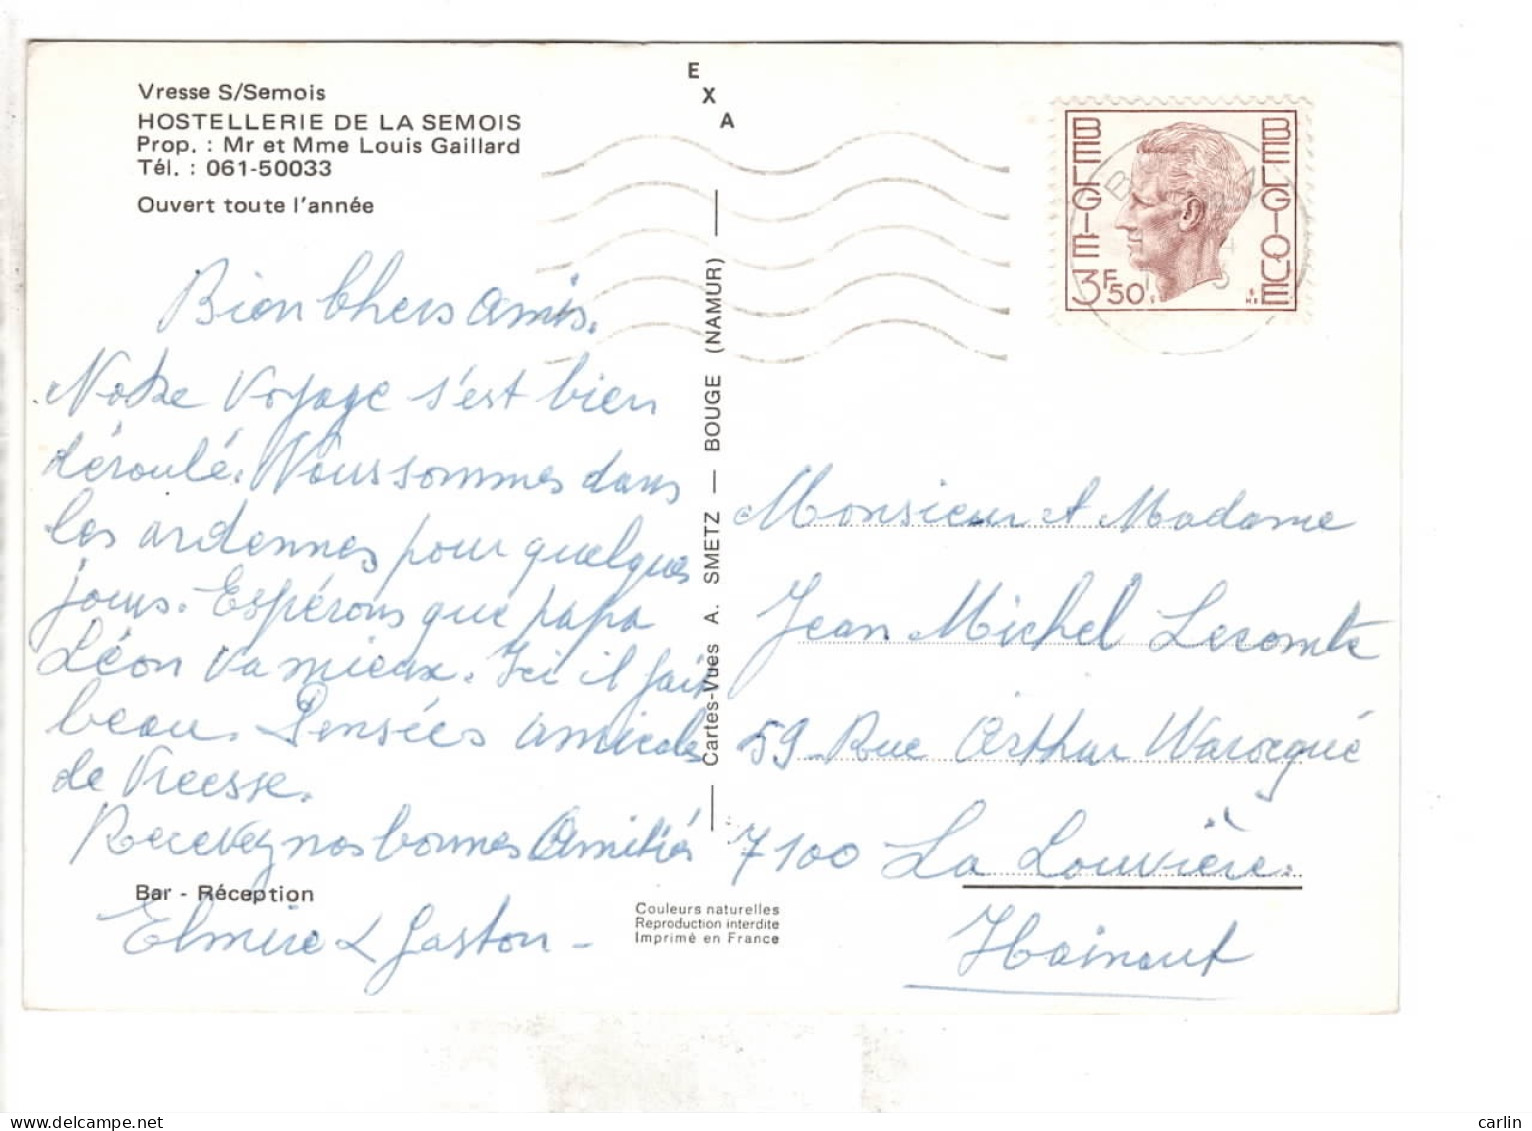 Vresse S/Semois
HOSTELLERIE DE LA SEMOIS
Prop. : Mr et Mme Louis Gaillard
Tél. : 061-50033
Ouvert toute l'année
Bien Chers amis.
Notre Voyage s'est bien
déroulé. Nous sommes dans
les ardennes pour quelques
jours. Espérons que papa
Léon va mieux. Ici il fait
beau. Pensées amicales
de Vreesse.
Recevez nos bonnes Amitiés
Bar - Réception
Elmire & Gaston -
E
X
A
Cartes-Vues A. SMETZ — BOUGE (NAMUR)
Couleurs naturelles
Reproduction interdite
Imprimé en France
BELGIE
BELGIQUE
3F50
Monsieur et Madame
Jean Michel Lecomte
59 Rue Arthur Warocqué
7100 La Louvière.
Hainaut
carlin